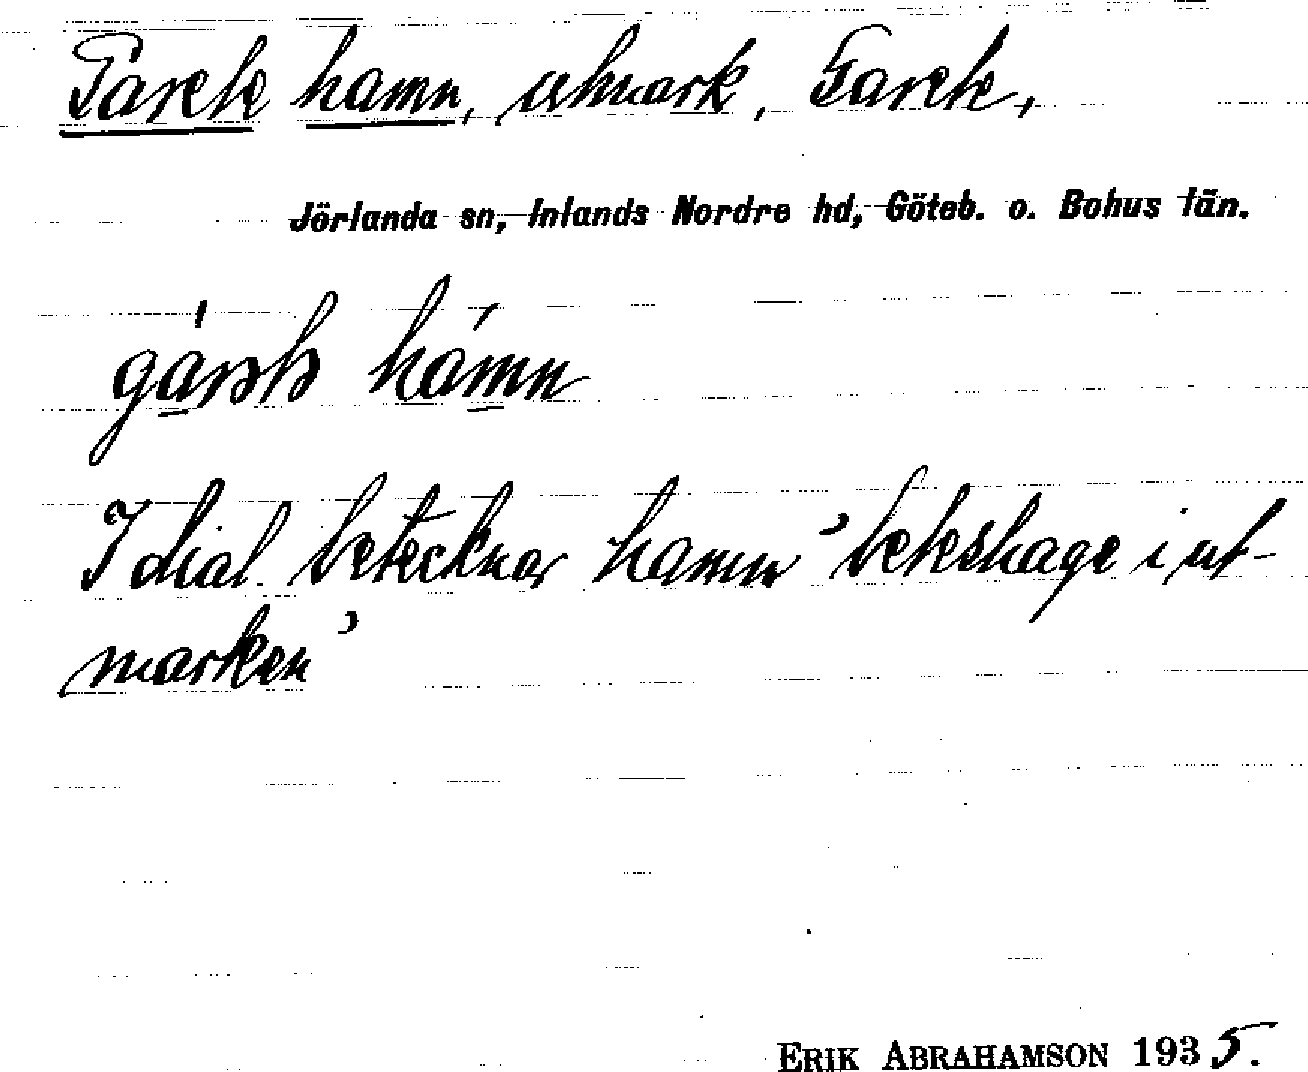 hamn, utmark,
Jörlanda sn, Inlands Nordre hd, Göteb. o. Bohus län.
I dial. betecknar hamn 'beteshage i ut-
marken'
ERIK ABRAHAMSON 1935.